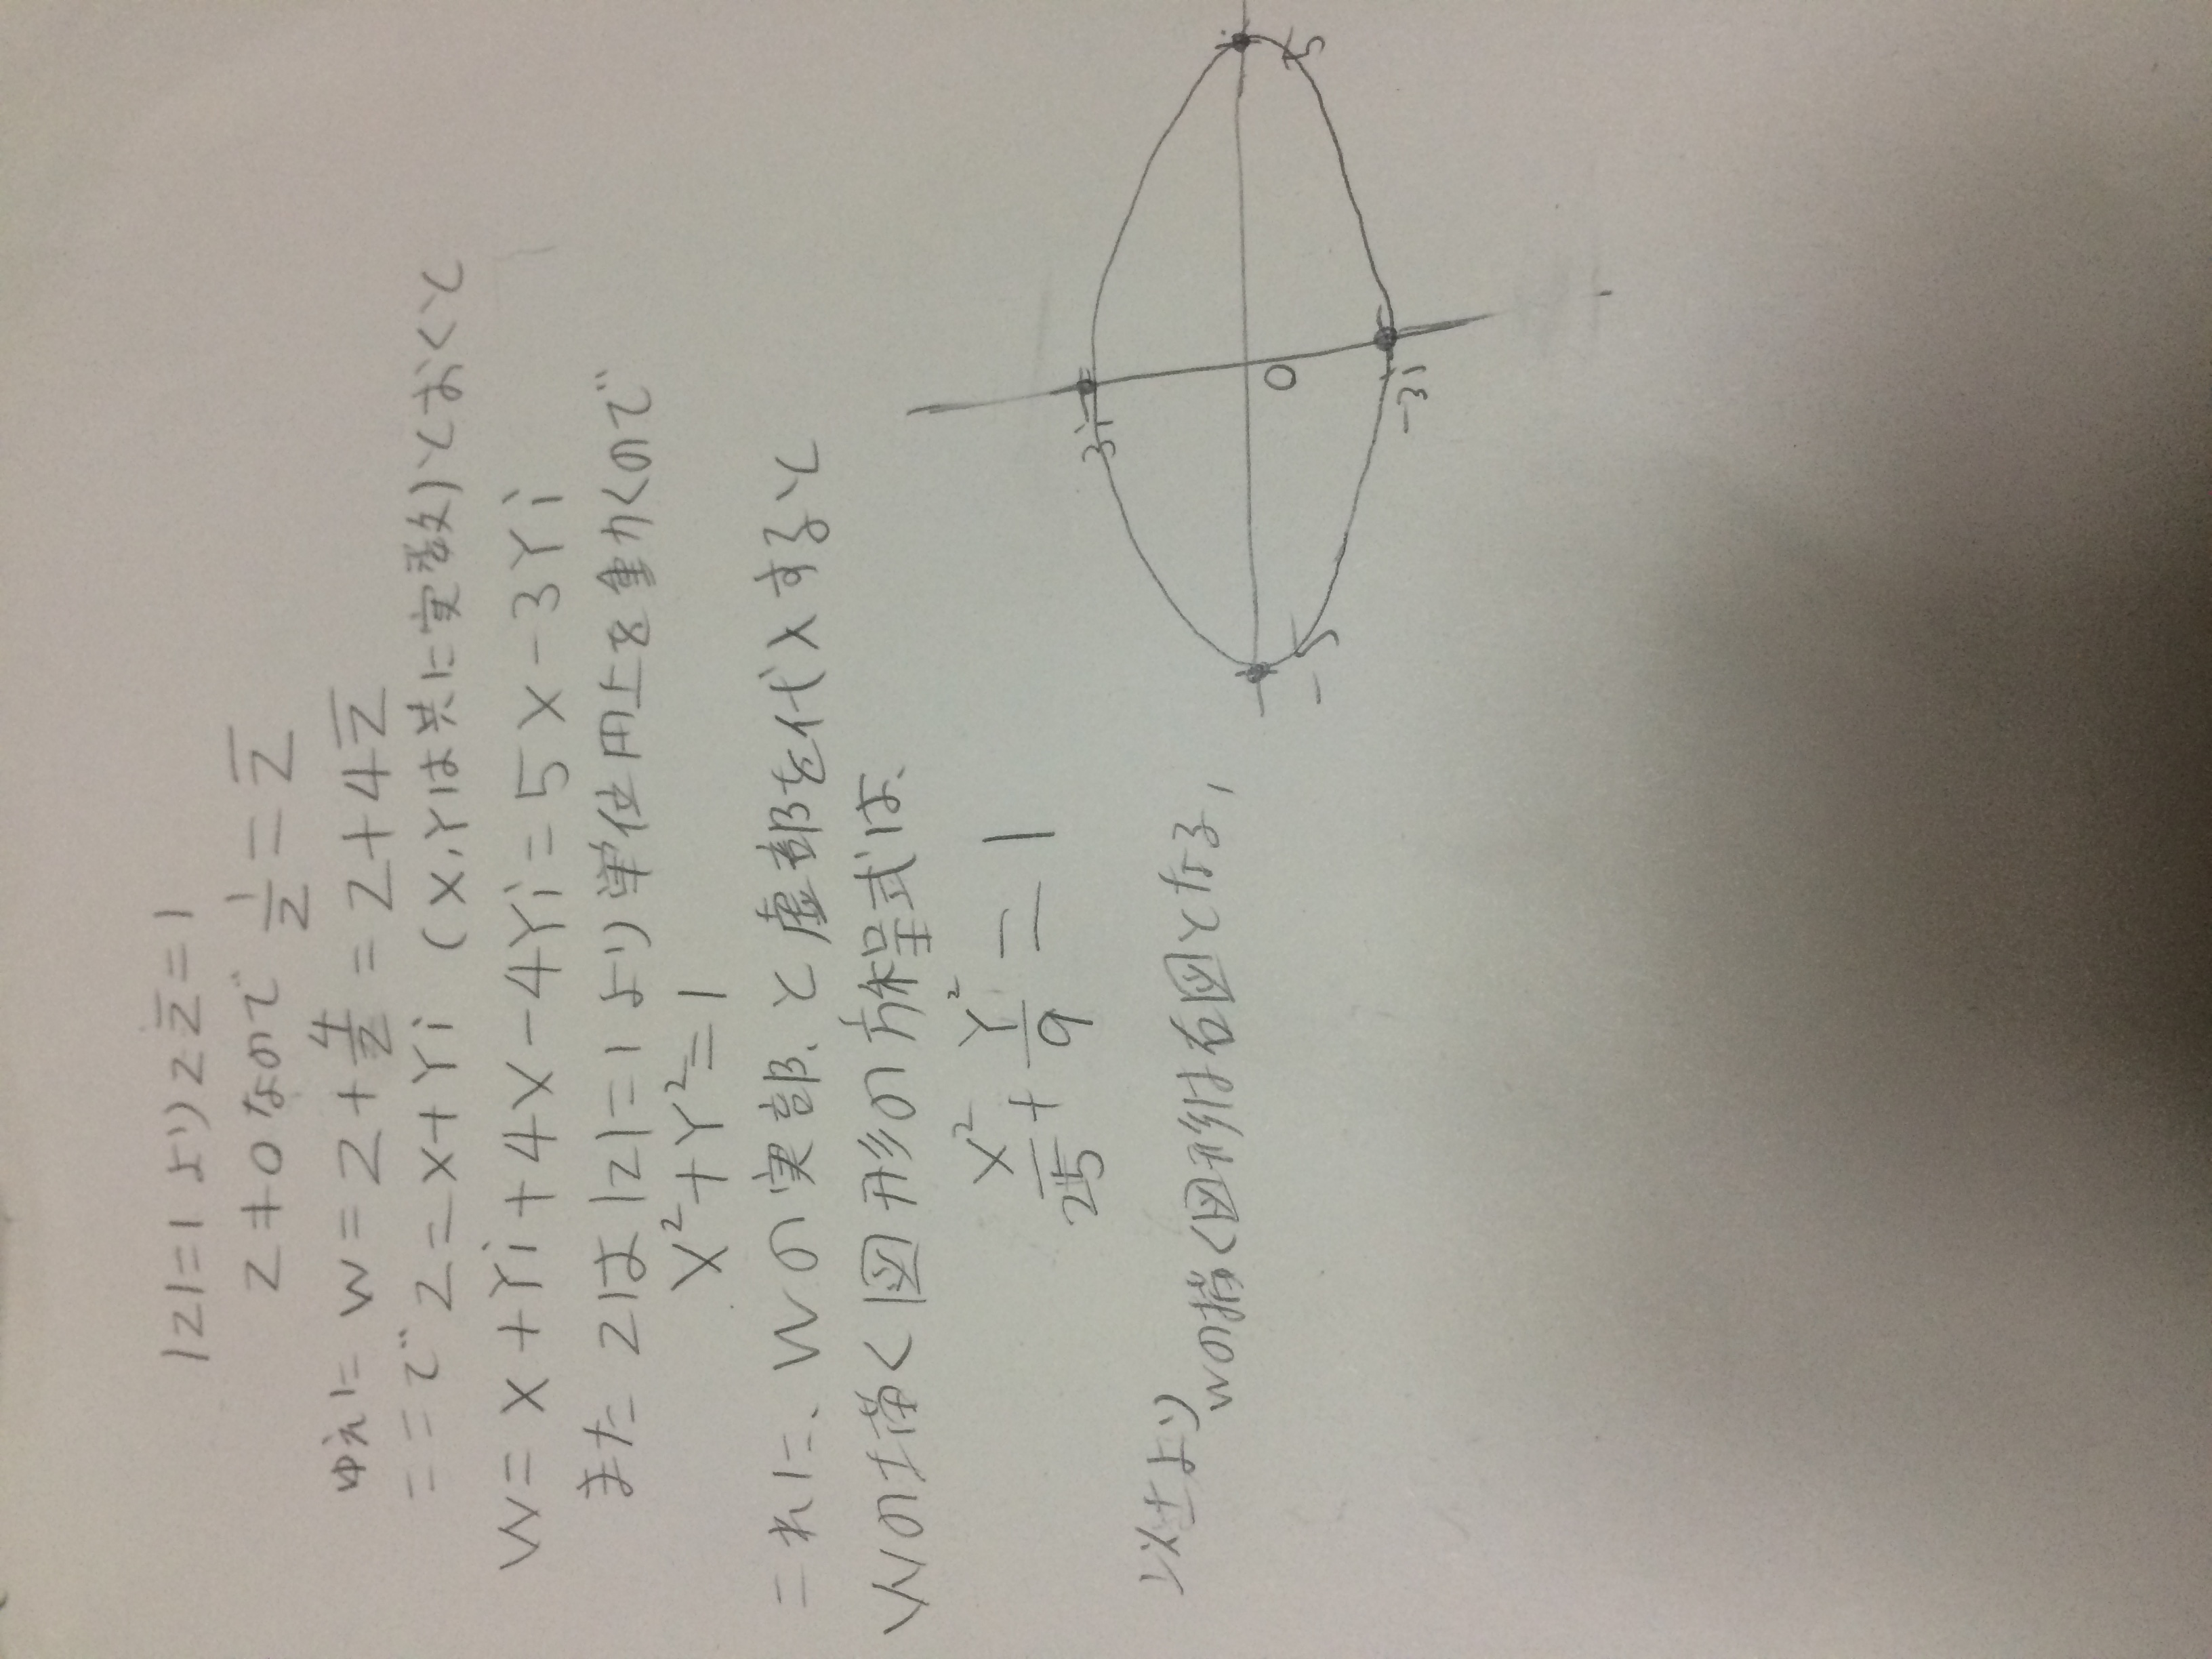 |z|=1より z\overline{z}=1
z≠0なので \frac{1}{z}=\overline{z}
ゆえに w=z+\frac{4}{z}=z+4\overline{z}
ここで z=X+Yi (X,Yは共に実数)とおくと
w=X+Yi+4X-4Yi=5X-3Yi
また zは|z|=1より単位円上を動くので
X²+Y²=1
これに、wの実部、と虚部を代入すると
wの描く図形の方程式は、
\frac{X²}{25}+\frac{Y²}{9}=1
以上より
wの描く図形は右図となる,
3i
-5
0
5
-3i